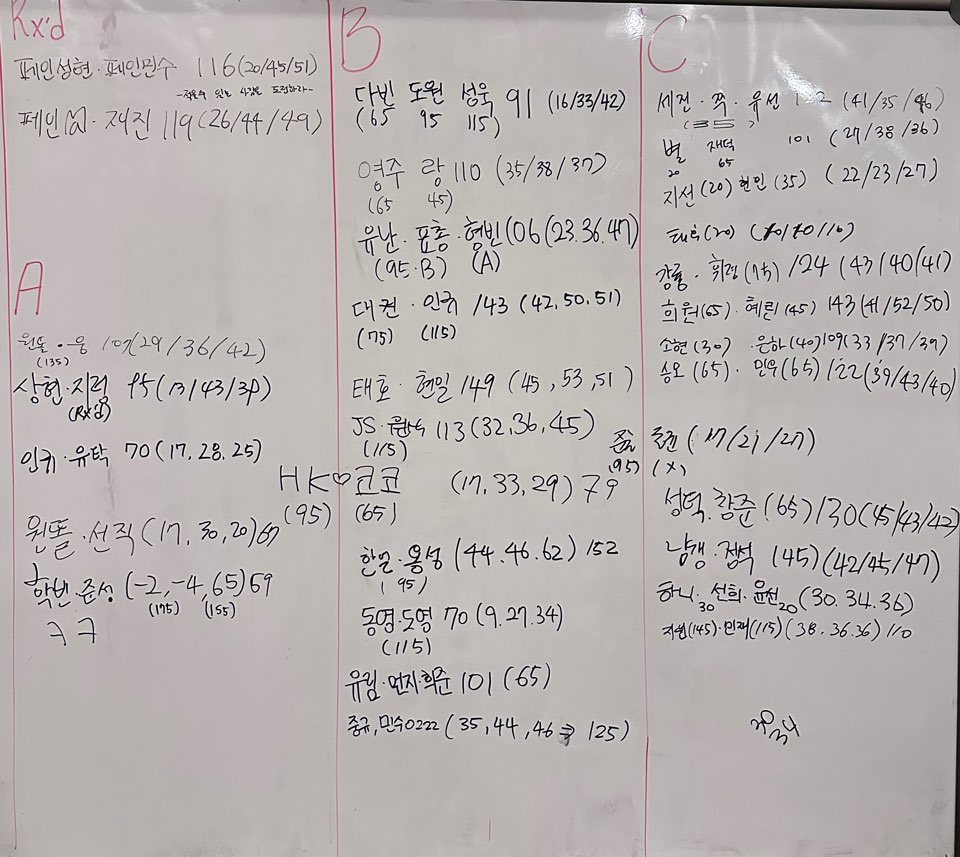 Rx'd
페인성현·페인민수 116(20/45/51)
페인 재진 119(26/44/49)
A
원똘·웅 107(29/36/42)
(135)
상현·지럼 95(13/43/39)
(Rx'd)
인규·유탁 70(17.28.25)
원똘·선직(17,30,20)67
학빈·준성(-2,-4,65)59
(175) (155)
ㅋㅋ
B
다빈 도원 성욱 91 (16/33/42)
(65 95 115)
영주 랑 110 (35/38/37)
(65 45)
유난·표총·형빈(06(23.36.47)
(95·B) (A)
대권·인규 143(42,50,51)
(75) (115)
태호·현일 149 (45,53,51)
JS· 113(32,36,45)
(115)
HK♡코코 (17,33,29)79
(95) (65)
한얼·용성(44.46.62)152
(95)
동영·도영 70(9.27.34)
(115)
유림·민지·희준 101(65)
중규,민수0222(35,44,46⇒125)
C
세진·쪽·유선 (41/35/46)
(35)
별 재덕 101 (27/38/36)
20 65
지선(20)현민(35) (22/23/27)
(20) (10/10/10)
강룡·휘령(75) 124(43/40/41)
희원(65)·혜린(45) 143(41/52/50)
소현(30)·은하(40)109(33/37/39)
승오(65)·민우(65)122(39/43/40)
(17/21/27)
(95) (X)
성덕·창준(65)130(45/43/42)
낭갱·정석(45)(42/45/47)
하니·선희·윤선(30.34.36)
30 20
지원(145)·민재(115)(38.36.36)110